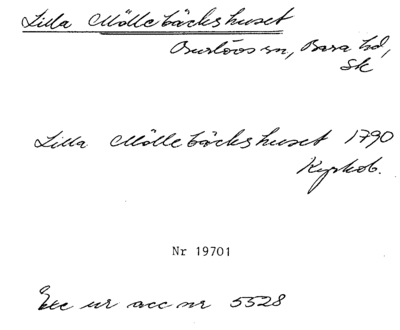 Lilla Möllebäckshuset
Burlövs sn, Bara hd,
Sk
Lilla Möllebäckshuset 1790
Kyrkob.
Nr 19701
Exc ur acc nr 5528